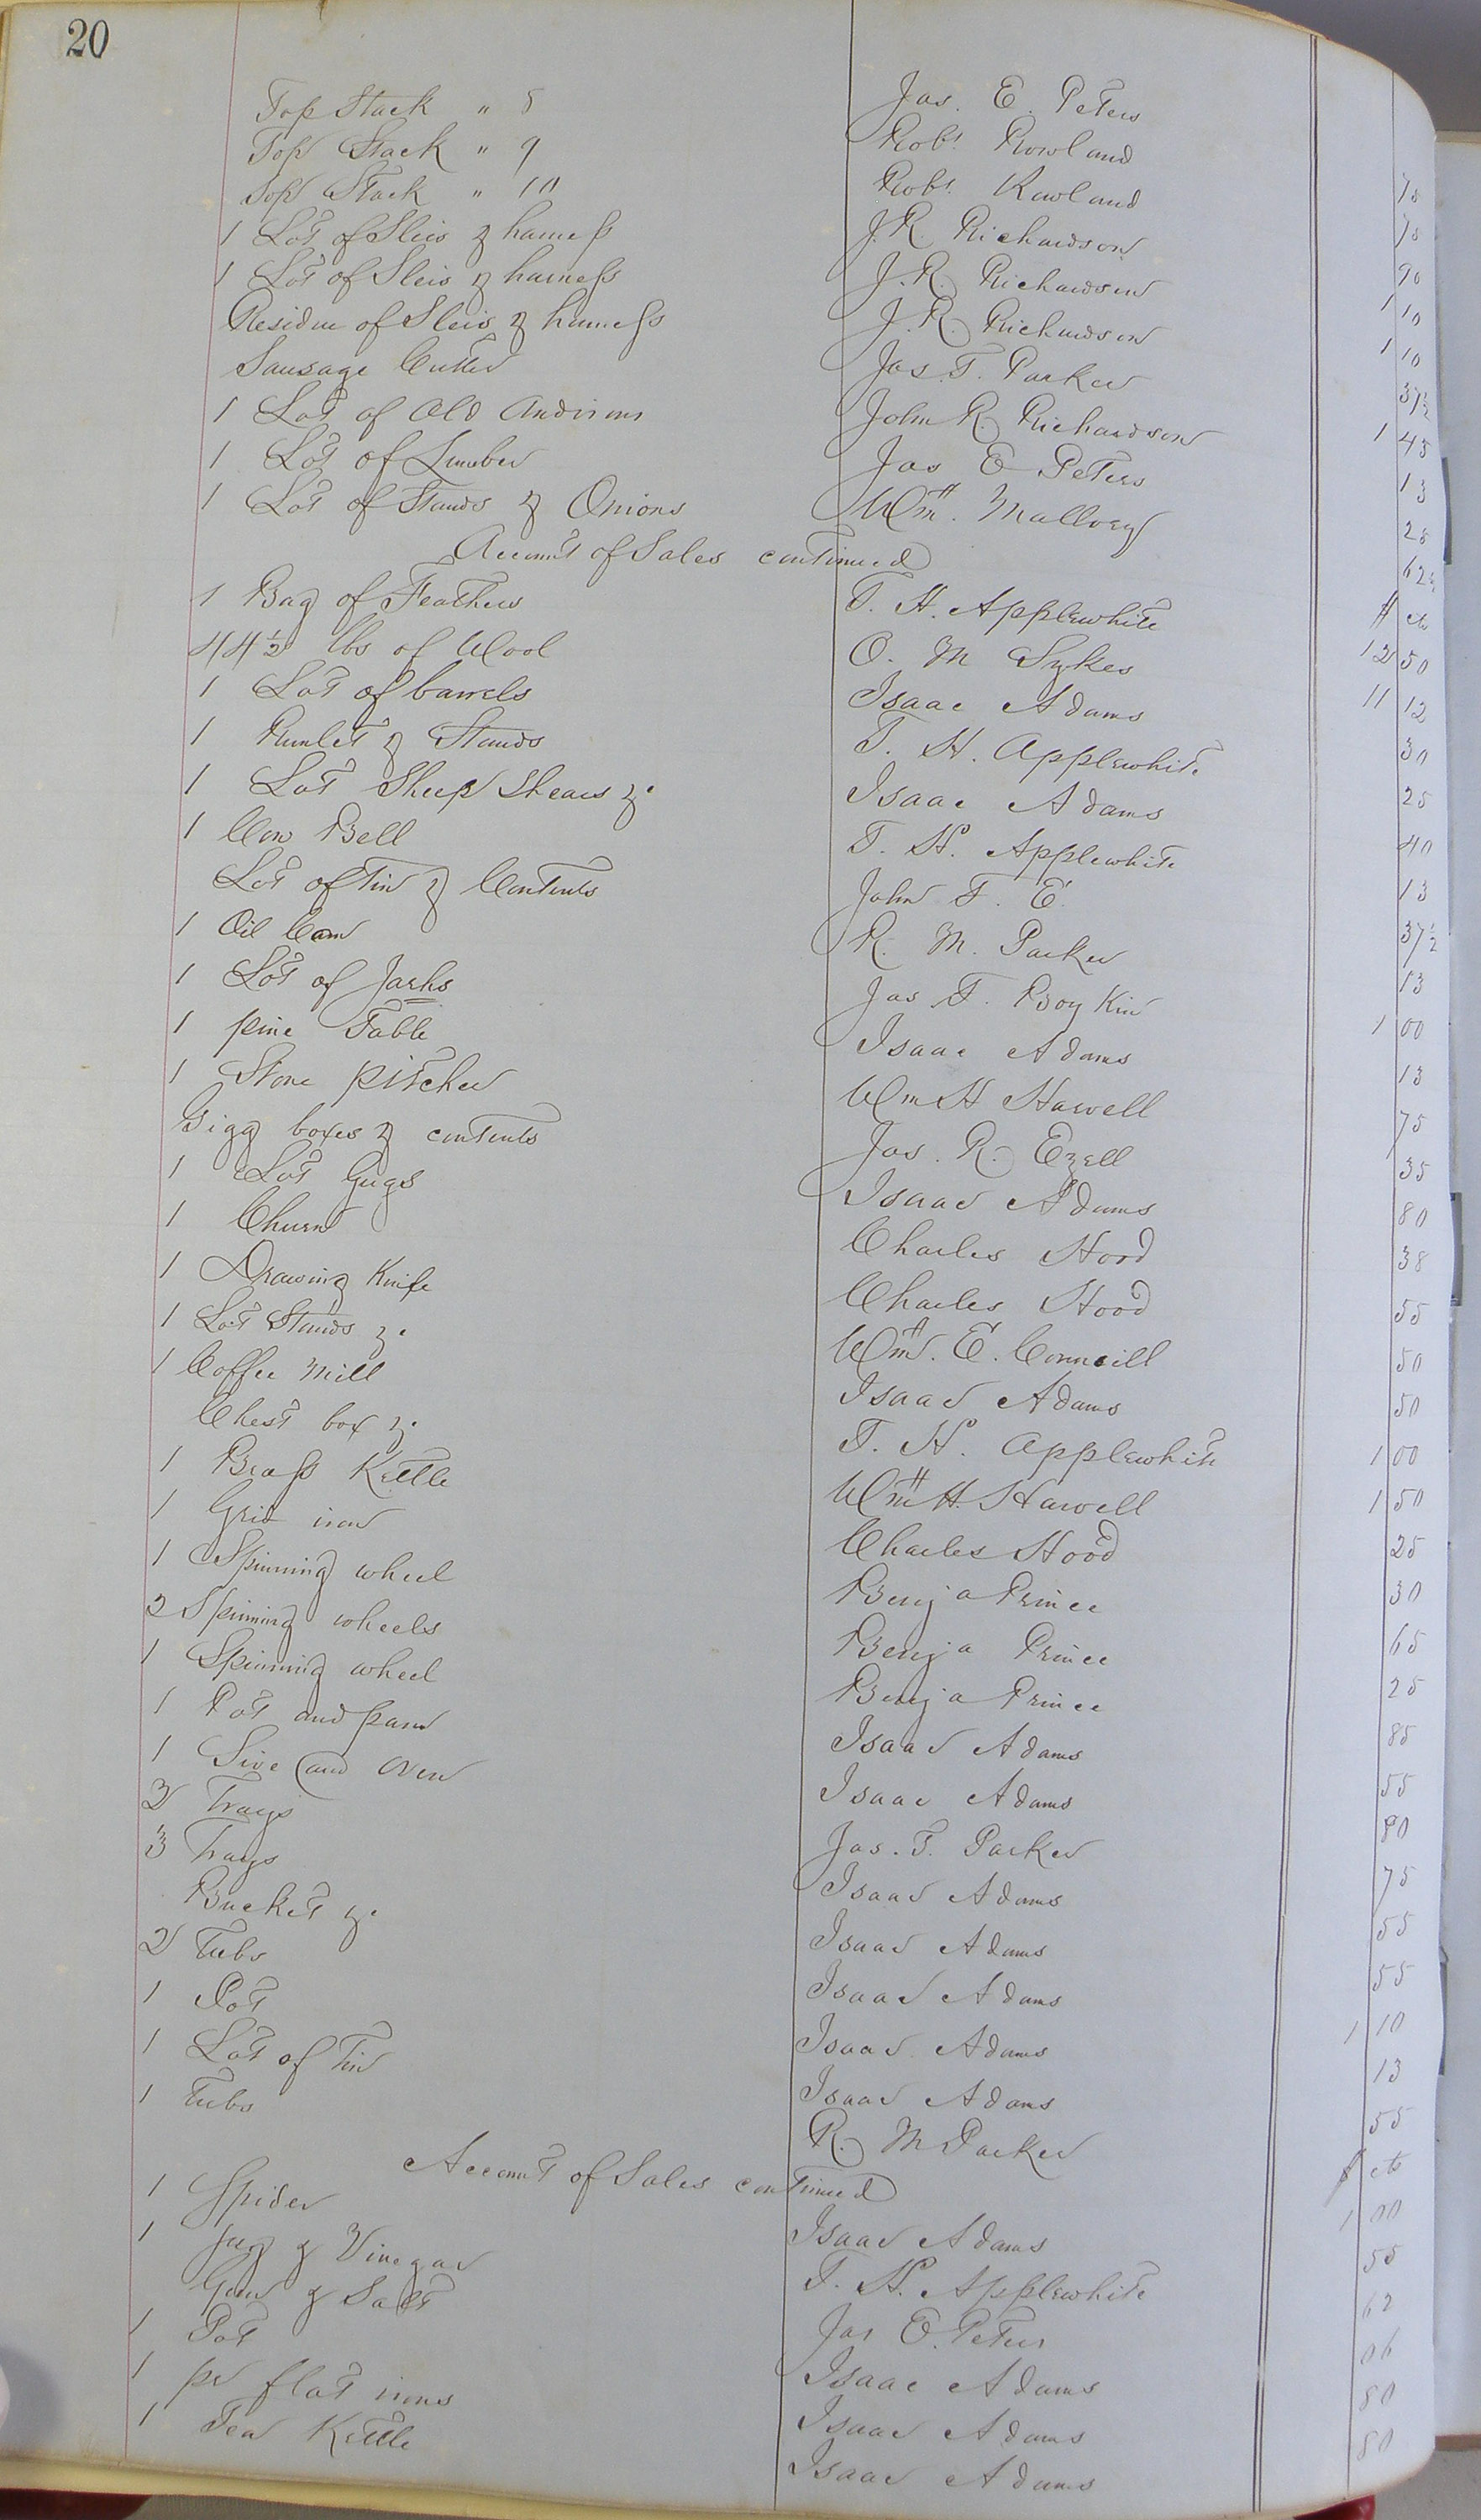 20
Top Stack " 8 Jas. E. Peters 75
Top Stack " 9 Robt. Rowland 75
Top Stack " 10 Robt. Rowland 90
1 Lot of Sleis & harness J. R. Richardson 1 10
1 Lot of Sleis & harness J. R. Richardson 1 10
Residue of Sleis & harness J. R. Richardson 37½
Sausage Cutter Jas. T. Parker 1 45
1 Lot of Old Andirons John R. Richardson 13
1 Lot of Lumber Jas E Peters 25
1 Lot of Stands & Onions Wm. Mallory 62½
Account of Sales continued $ cts
1 Bag of Feathers T. H. Applewhite 12 50
44½ lbs of Wool O. M Sykes 11 12
1 Lot of barrels Isaac Adams 30
1 Runlet & Stands T. H. Applewhite 25
1 Lot Sheep Shears &c Isaac Adams 40
1 Cow Bell T. H. Applewhite 13
Lot of Tin & Contents John T. E. 37½
1 Oil Can R. M. Parker 13
1 Lot of Jarks Jas T. Boykin 1 00
1 pine Table Isaac Adams 13
1 Stone pitcher Wm H Harvell 75
Gigg boxes & contents Jas. R. Ezell 35
1 Lot Gugs Isaac Adams 80
1 Churn Charles Hood 38
1 Drawing Knife Charles Hood 55
1 Lot Stands &c Wm. E. Conneill 50
1 Coffee Mill Isaac Adams 50
Chest box &c T. H. Applewhite 1 00
1 Brass Kettle Wm H. Harvell 1 50
1 Grid iron Charles Hood 25
1 Spinning wheel Benja Prince 30
2 Spinning wheels Benja Prince 65
1 Spinning wheel Benja Prince 25
1 Pot and pan Isaac Adams 85
1 Sive and oven Isaac Adams 55
2 Trays Jas. T. Parker 80
3 Trays Isaac Adams 75
Bucket &c Isaac Adams 55
2 Tubs Isaac Adams 55
1 Pot Isaac Adams 1 10
1 Lot of Tin Isaac Adams 13
1 Tubs R. M Parker 55
Account of Sales continued $ cts
1 Spider Isaac Adams 1 00
1 Jug & Vinegar T. H. Applewhite 55
Gum & Salt Jas E. Peters 62
1 Pot Isaac Adams 06
1 pr flat irons Isaac Adams 80
1 Tea Kettle Isaac Adams 80